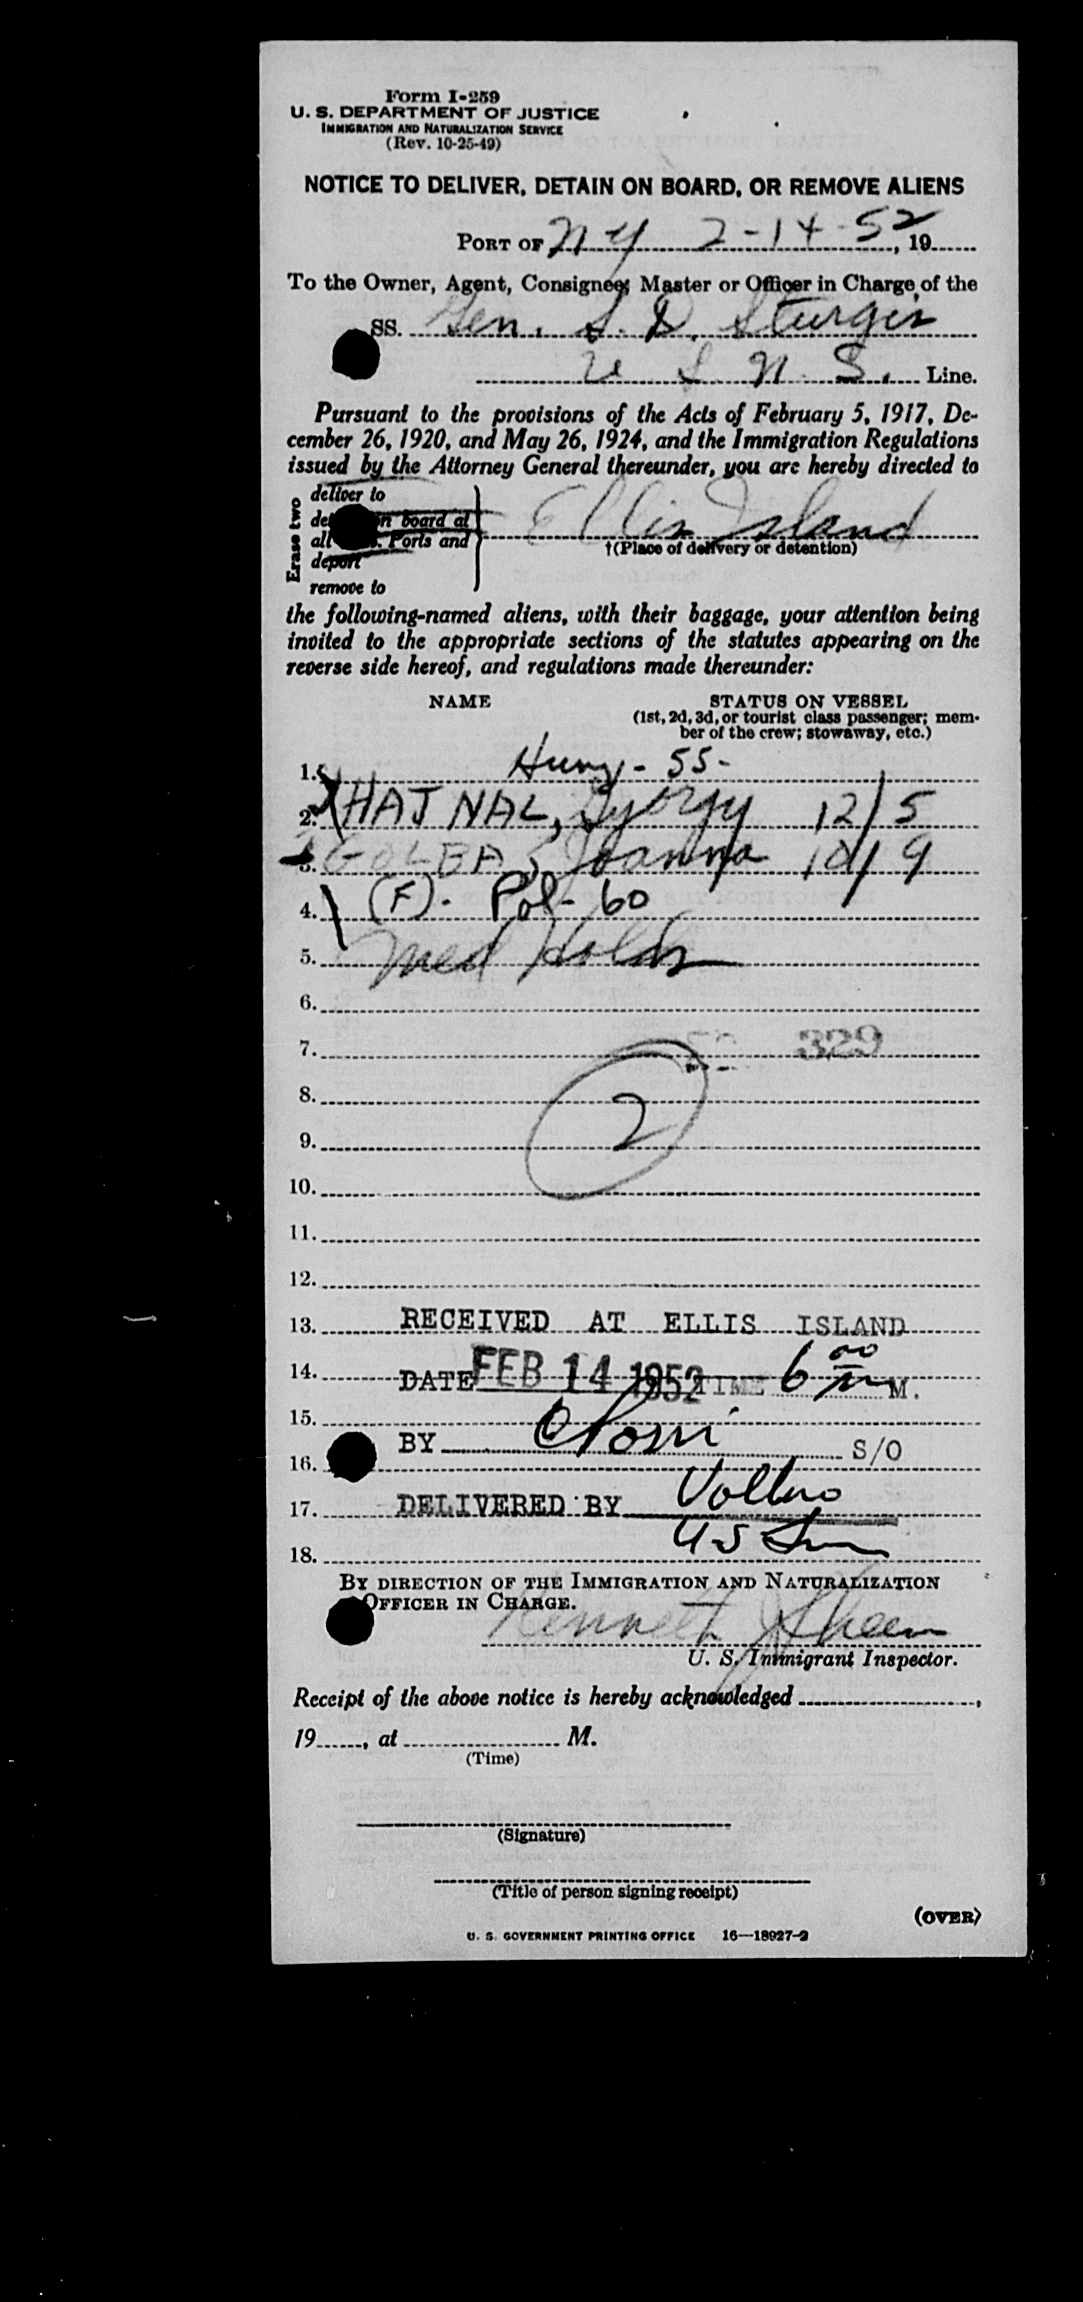 Form I-259
U. S. DEPARTMENT OF JUSTICE
IMMIGRATION AND NATURALIZATION SERVICE
(Rev. 10-25-49)
NOTICE TO DELIVER, DETAIN ON BOARD, OR REMOVE ALIENS
PORT OF NY 2-14-52, 19
To the Owner, Agent, Consignee, Master or Officer in Charge of the
SS. Gen. S. D. Sturgis
U S N S. Line.
Pursuant to the provisions of the Acts of February 5, 1917, De-
cember 26, 1920, and May 26, 1924, and the Immigration Regulations
issued by the Attorney General thereunder, you are hereby directed to
Erase two
deliver to
on board at
all Ports and
deport
remove to
Ellis Island
†(Place of delivery or detention)
the following-named aliens, with their baggage, your attention being
invited to the appropriate sections of the statutes appearing on the
reverse side hereof, and regulations made thereunder:
NAME STATUS ON VESSEL
(1st, 2d, 3d, or tourist class passenger; mem-
ber of the crew; stowaway, etc.)
1. Hung - 55-
2. HAJNAL, Gyorgy 12/5
3. Joanna 10/9
4. (F). Pol- 60
5. Med Holds
6.
7. 329
8.
2
9.
10.
11.
12.
13. RECEIVED AT ELLIS ISLAND
14. DATE FEB 14 1952 TIME 6 00 M.
15.
BY S/O
16.
17. DELIVERED BY
18. US
BY DIRECTION OF THE IMMIGRATION AND NATURALIZATION
OFFICER IN CHARGE.
Kenneth J Sheen
U. S. Immigrant Inspector.
Receipt of the above notice is hereby acknowledged ,
19 , at M.
(Time)
(Signature)
(Title of person signing receipt)
(OVER)
U. S. GOVERNMENT PRINTING OFFICE 16—18927-2